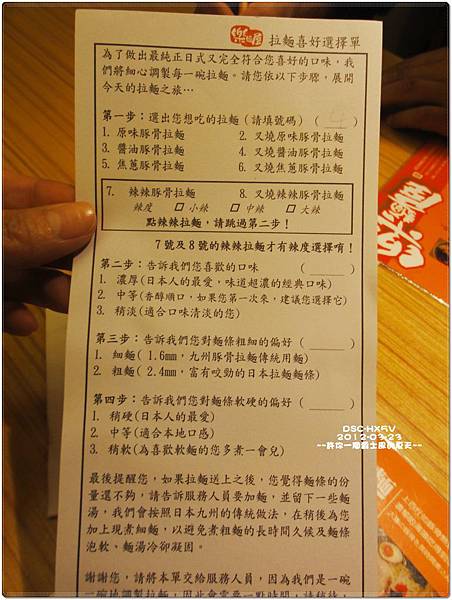 樂麵屋 拉麵喜好選擇單
為了做出最純正日式又完全符合您喜好的口味，我
們將細心調製每一碗拉麵。請您依以下步驟，展開
今天的拉麵之旅…
第一步：選出您想吃的拉麵(請填號碼) ( 4 )
1. 原味豚骨拉麵 2. 叉燒原味豚骨拉麵
3. 醬油豚骨拉麵 4. 叉燒醬油豚骨拉麵
5. 焦蔥豚骨拉麵 6. 叉燒焦蔥豚骨拉麵
7. 辣辣豚骨拉麵 8. 叉燒辣辣豚骨拉麵
辣度 □ 小辣 □ 中辣 □ 大辣
點辣辣拉麵，請跳過第二步！
7號及8號的辣辣拉麵才有辣度選擇唷！
第二步：告訴我們您喜歡的口味 (____)
1. 濃厚(日本人的最愛，味道超濃的經典口味)
2. 中等(香醇順口，如果您第一次來，建議您選擇它)
3. 稍淡(適合口味清淡的您)
第三步：告訴我們您對麵條粗細的偏好 (____)
1. 細麵( 1.6mm，九州豚骨拉麵傳統用麵)
2. 粗麵( 2.4mm，富有咬勁的日本拉麵麵條)
第四步：告訴我們您對麵條軟硬的偏好 (____)
1. 稍硬(日本人的最愛)
2. 中等(適合本地口感)
3. 稍軟(為喜歡軟麵的您多煮一會兒)
最後提醒您，如果拉麵送上之後，您覺得麵條的份
量還不夠，請告訴服務人員要加麵，並留下一些麵
湯，我們會按照日本九州的傳統做法，在稍後為您
加上現煮細麵，以避免煮粗麵的長時間久候及麵條
泡軟、麵湯冷卻凝固。
謝謝您，請將本單交給服務人員，因為我們是一碗
一碗地調製拉麵，因此會需要一點時間，請稍待，
DSC-HX5V
2012-03-23